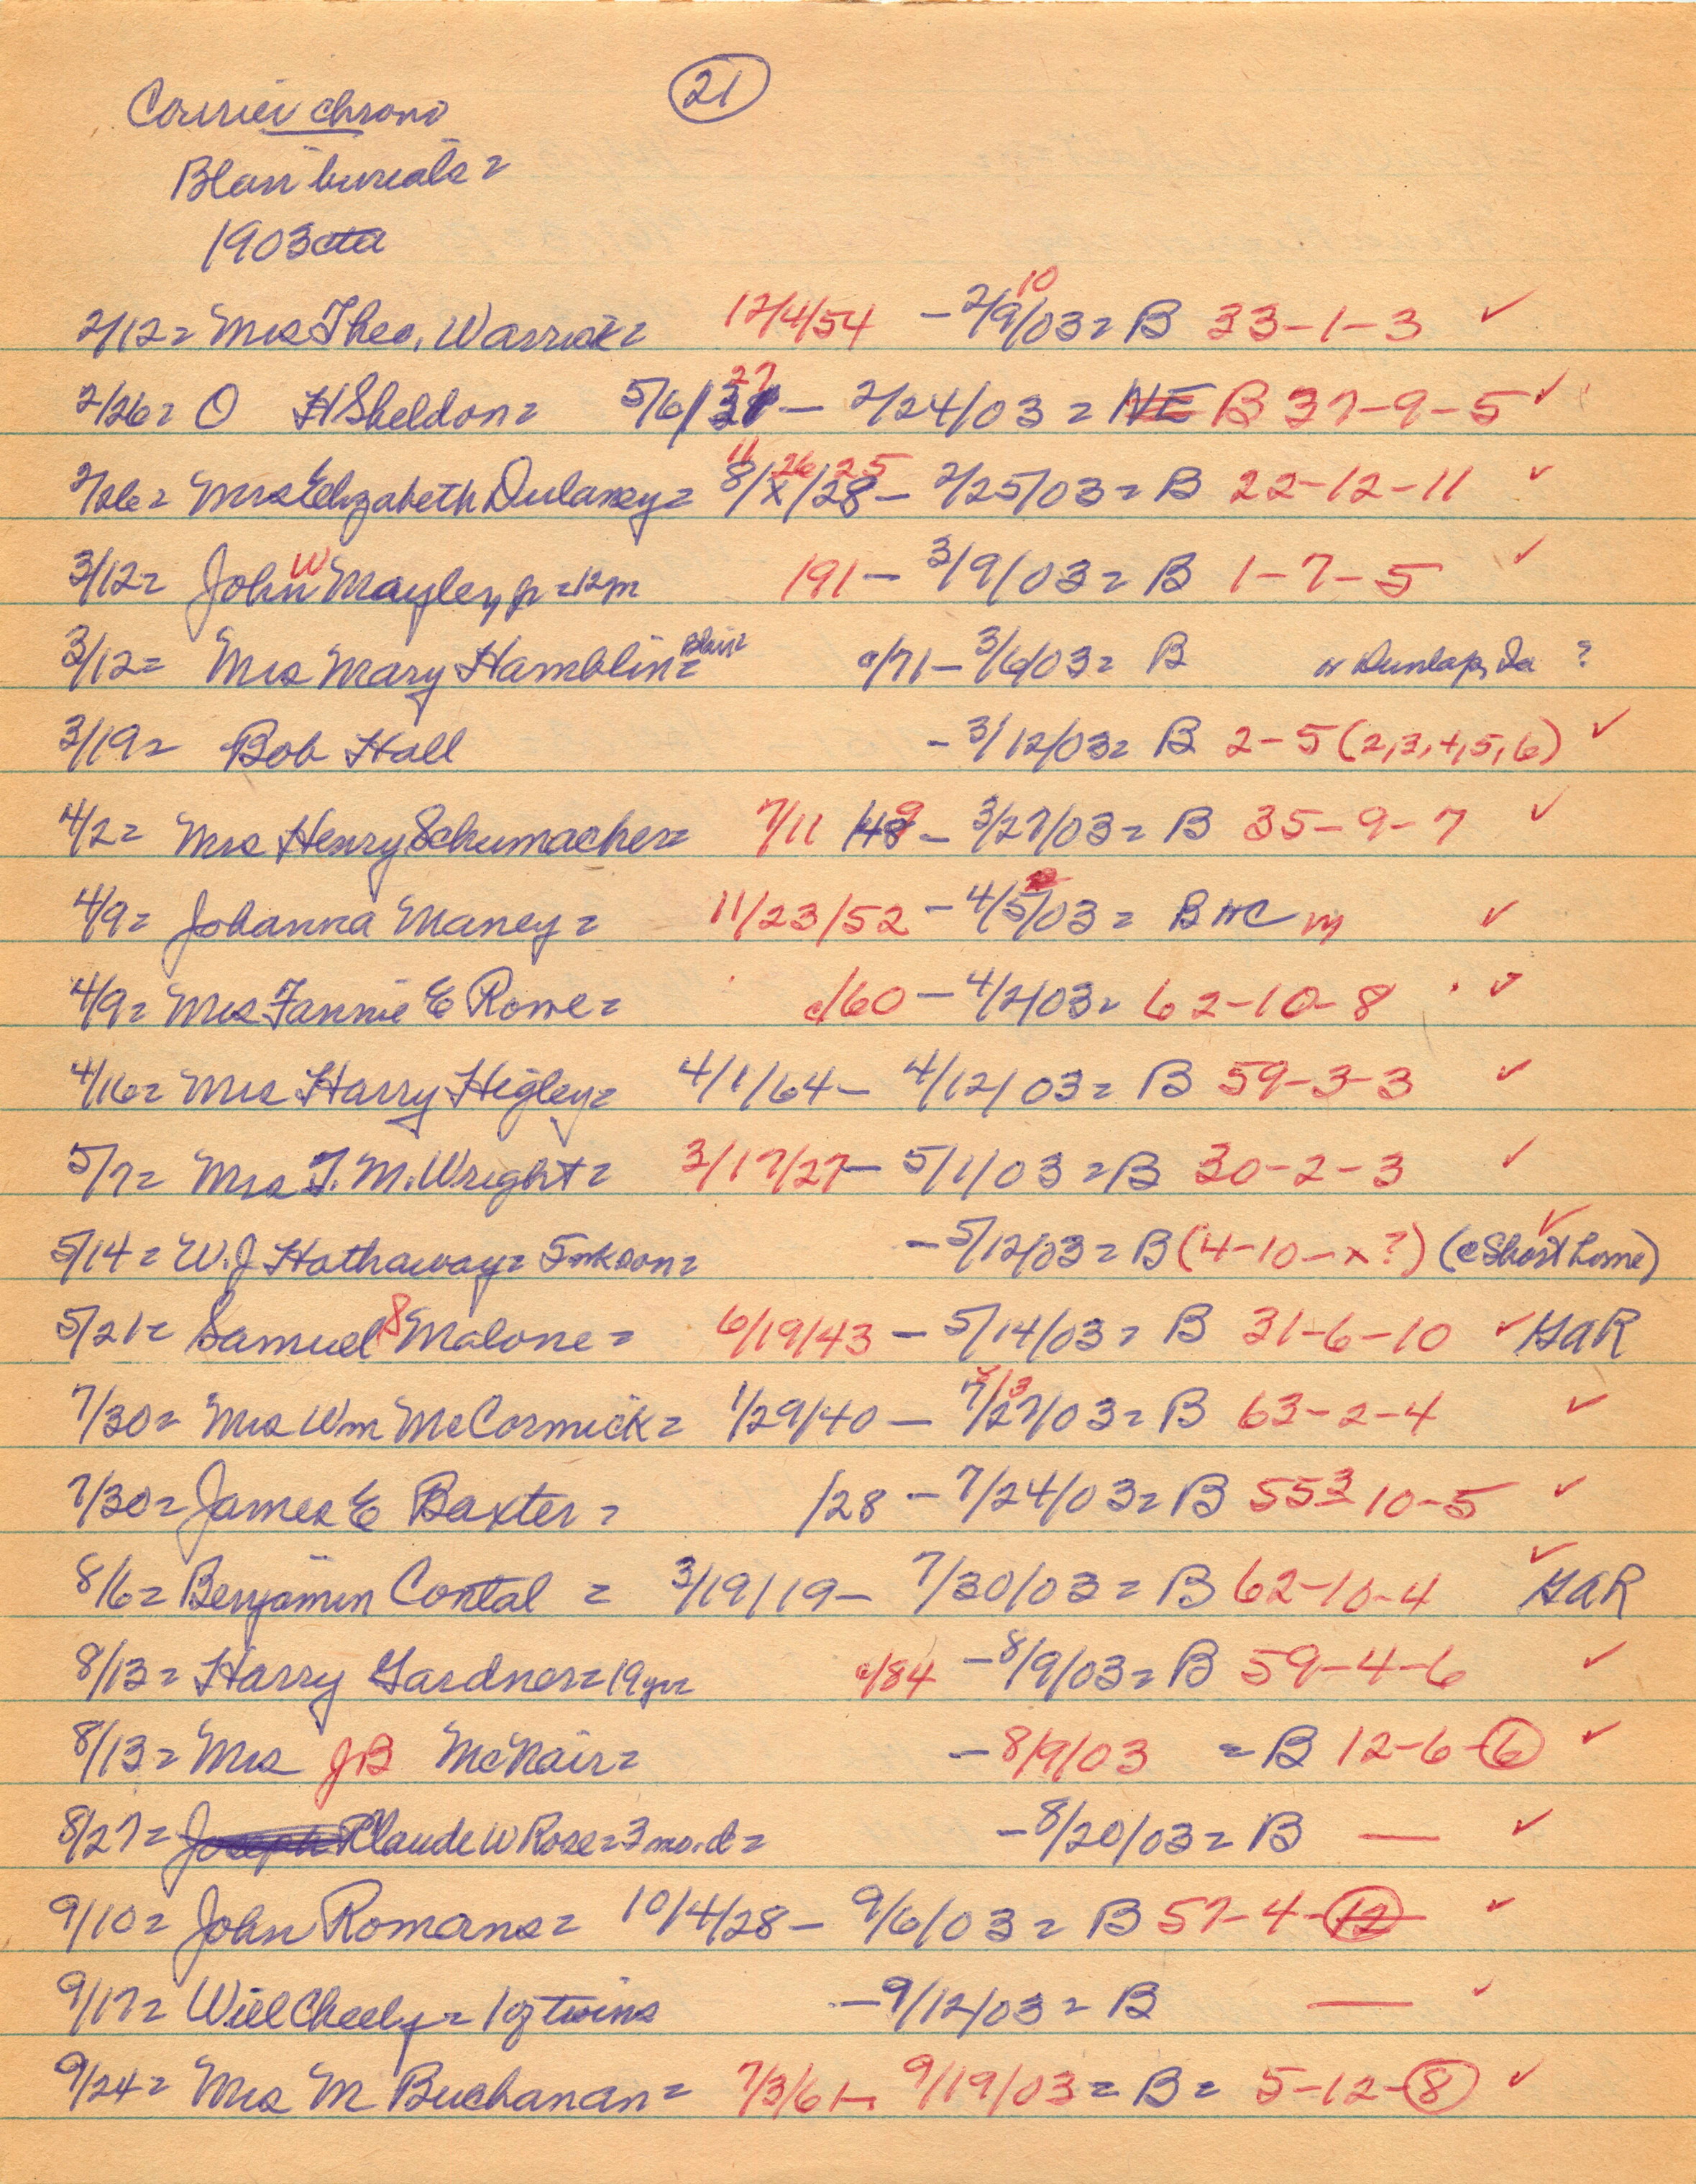 21
Courier chrono
Blair burials =
1903
2/12 = Mrs Theo. Warrick = 12/4/54 - 2/9/03 = B 33-1-3 ✓
10
2/26 = O H Sheldon = 5/6/ 27 - 2/24/03 = NE B 37-9-5 ✓
2/26 = Mrs Elizabeth Dulaney = 8/x/28 - 2/25/03 = B 22-12-11 ✓
11 26 25
3/12 = John W Mayley, Jr = 12m 191 - 3/9/03 = B 1-7-5 ✓
3/12 = Mrs Mary Hamblin = Blair = c/71 - 3/6/03 = B or Dunlap, Ia ?
3/19 = Bob Hall - 3/12/03 = B 2-5 (2,3,4,5,6) ✓
4/2 = Mrs Henry Schumacher = 7/11 /48 9 - 3/27/03 = B 35-9-7 ✓
4/9 = Johanna Maney = 11/23/52 - 4/5/03 = B HC m ✓
4/9 = Mrs Fannie E Rowe = c/60 - 4/2/03 = 62-10-8 ✓
4/16 = Mrs Harry Higley = 4/1/64 - 4/12/03 = B 59-3-3 ✓
5/7 = Mrs T. M. Wright = 3/17/27 - 5/1/03 = B 30-2-3 ✓
5/14 = W. J Hathaway = 5mk son = - 5/12/03 = B (4-10-x?) (@ Short home) ✓
5/21 = Samuel S Malone = 6/19/43 - 5/14/03 = B 31-6-10 ✓ GAR
7/30 = Mrs Wm McCormick = 1/29/40 - 7/27/03 = B 63-2-4 ✓
7/30 = James E Baxter = /28 - 7/24/03 = B 553-10-5 ✓
8/6 = Benjamin Contal = 3/19/19 - 7/30/03 = B 62-10-4 ✓ GAR
8/13 = Harry Gardner = 19yr = c/84 - 8/9/03 = B 59-4-6 ✓
8/13 = Mrs JB McNair = - 8/9/03 = B 12-6-6 ✓
8/27 = Joseph Claude W Rose = 3 mo. d = - 8/20/03 = B — ✓
9/10 = John Romans = 10/4/28 - 9/6/03 = B 57-4-12 ✓
9/17 = Will Cheely = 1 of twins - 9/12/03 = B — ✓
9/24 = Mrs M Buchanan = 7/3/61 - 9/19/03 = B = 5-12-8 ✓